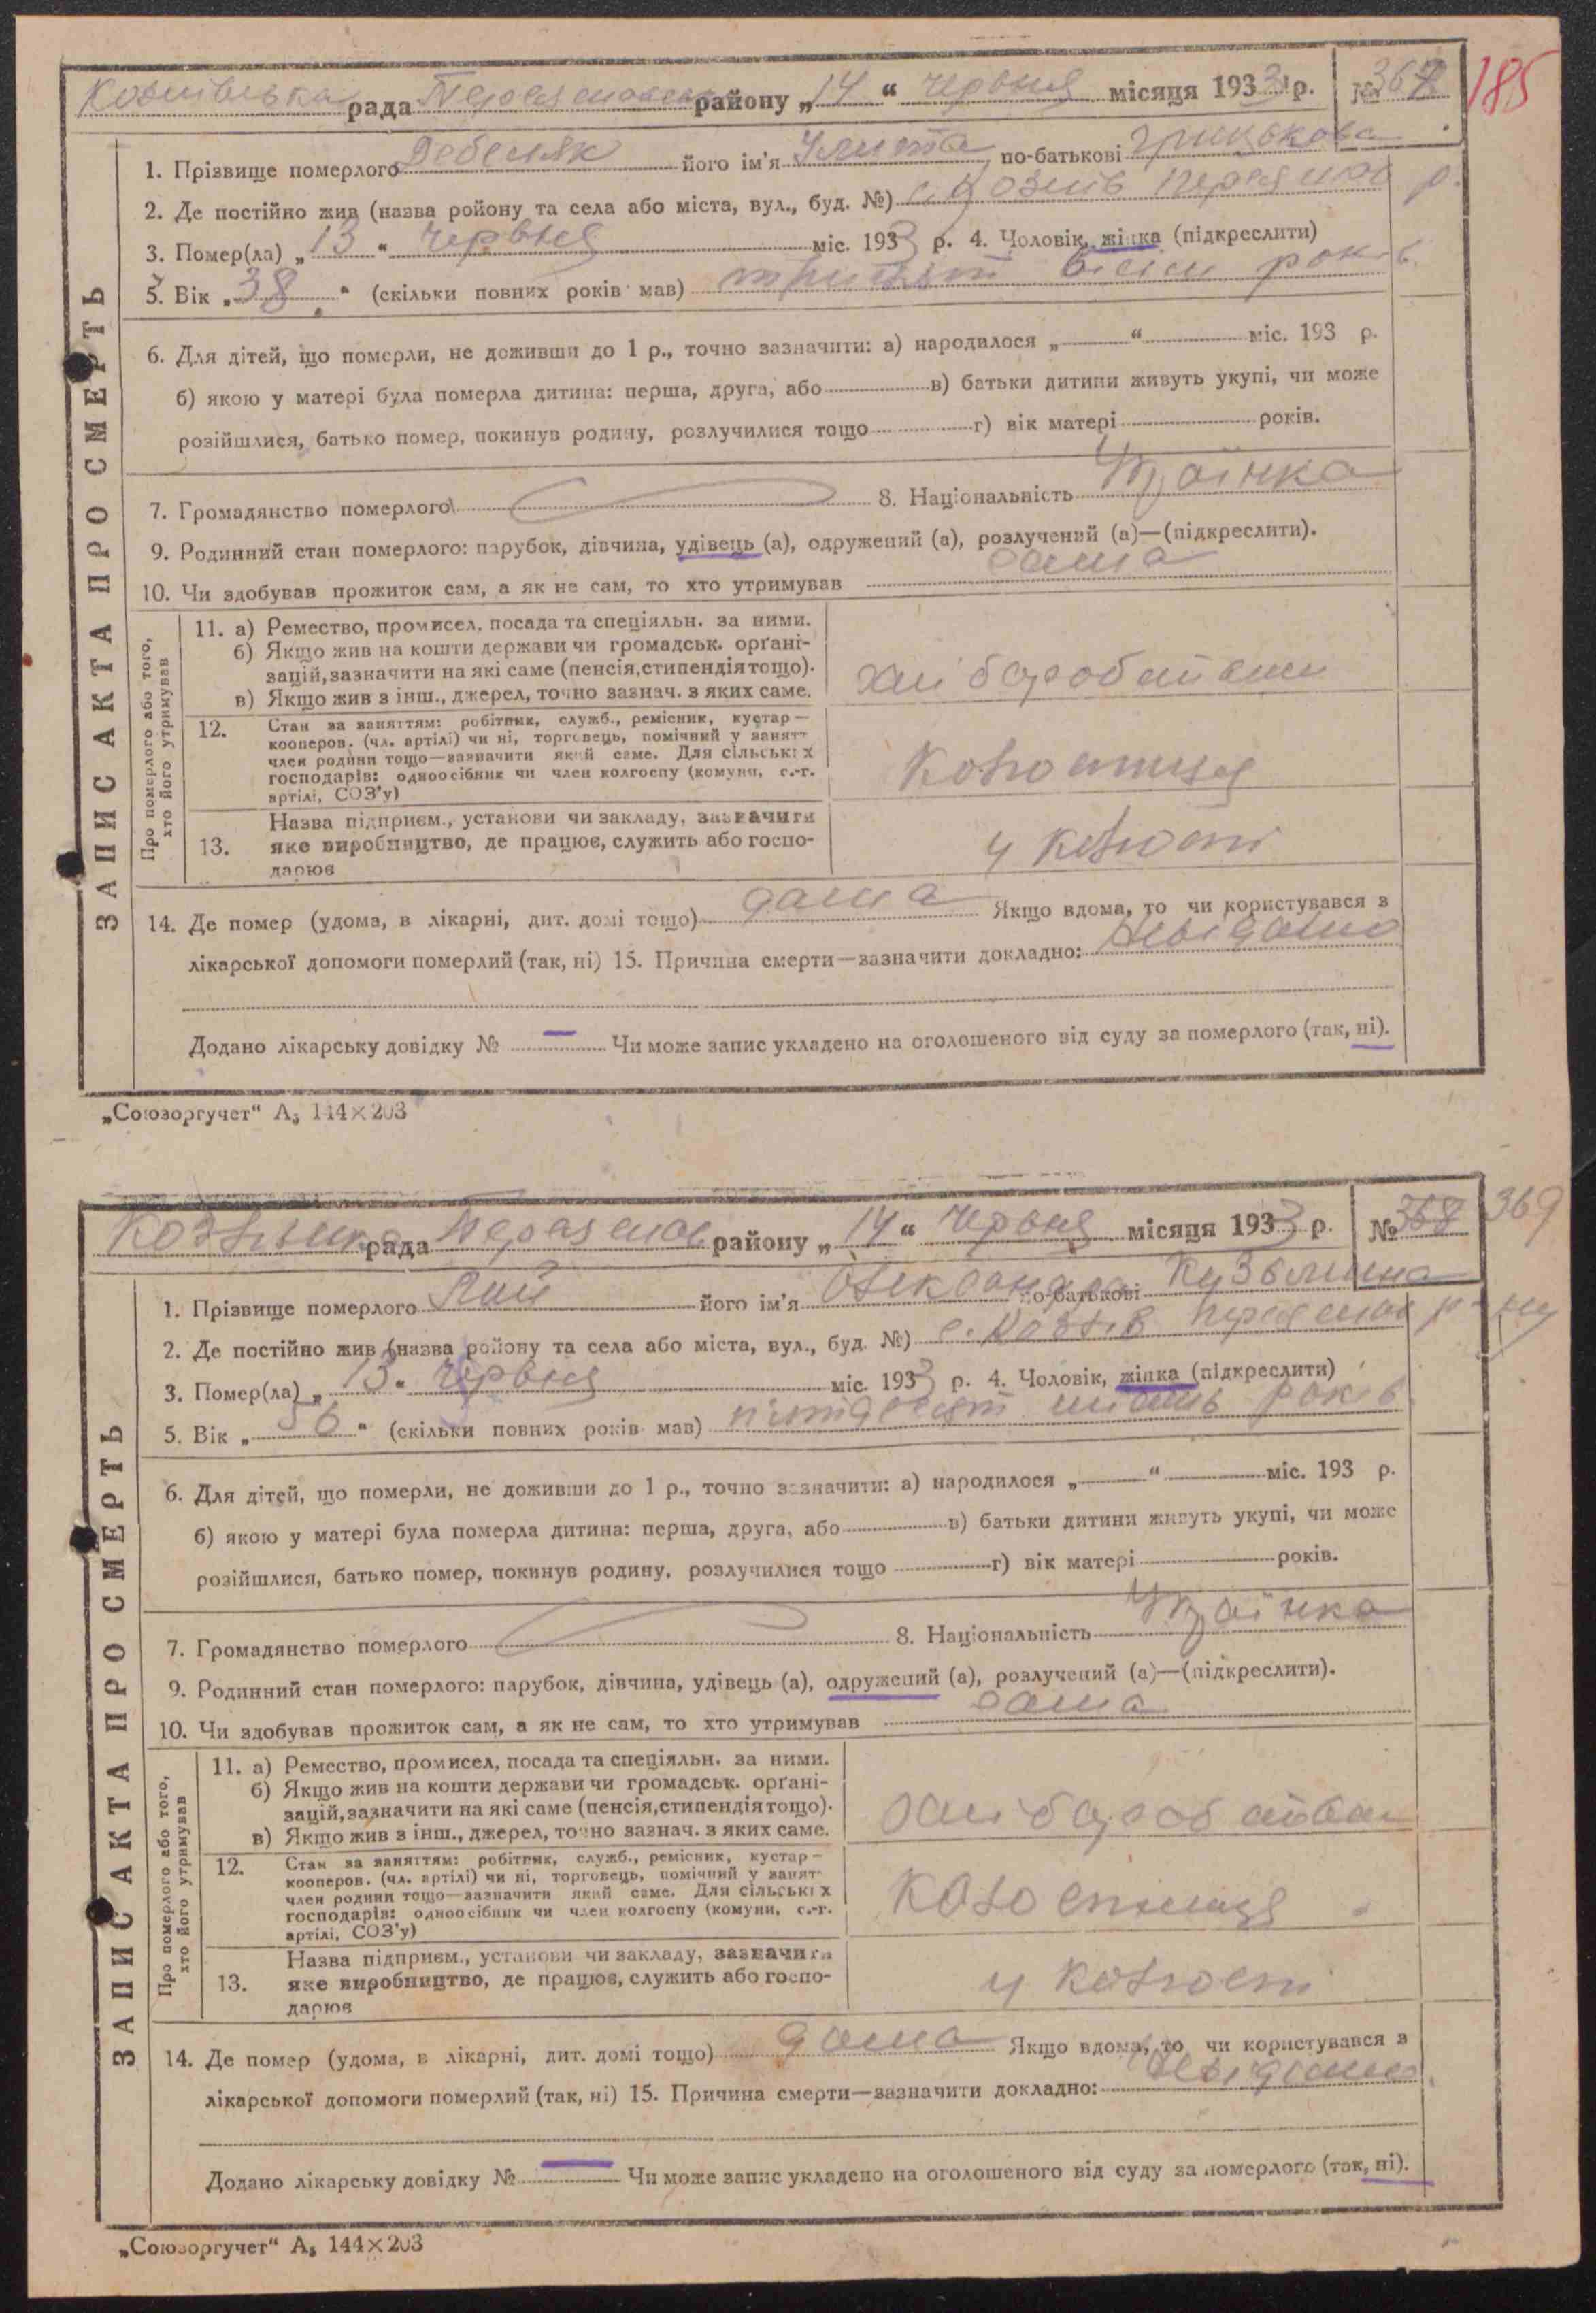 Козіївська рада Переяславськ району „14“ червня місяця 1933 р. № 367
185
1. Прізвище померлого Дебеляк його ім'я Улита по-батькові Грицькова
2. Де постійно жив (назва ройону та села або міста, вул., буд. №) с. Козиїв Переяслав р.
3. Помер(ла) „13“ червня міс. 1933 р. 4. Чоловік, жінка (підкреслити)
5. Вік „38“ (скільки повних років мав) тридцят вісім років.
6. Для дітей, що померли, не доживши до 1 р., точно зазначити: а) народилося „ “ міс. 193 р.
б) якою у матері була померла дитина: перша, друга, або в) батьки дитини живуть укупі, чи може
розійшлися, батько помер, покинув родину, розлучилися тощо г) вік матері років.
7. Громадянство померлого 8. Національність Українка
9. Родинний стан померлого: парубок, дівчина, удівець (а), одружений (а), розлучений (а)—(підкреслити).
10. Чи здобував прожиток сам, а як не сам, то хто утримував сама
ЗАПИС АКТА ПРО СМЕРТЬ
Про померлого або того,
хто його утримував
11. а) Ремество, промисел, посада та спеціяльн. за ними.
б) Якщо жив на кошти держави чи громадськ. орґані-
зацій, зазначити на які саме (пенсія, стипендія тощо).
в) Якщо жив з інш., джерел, точно зазнач. з яких саме.
хліборобством
12. Стан за заняттям: робітник, служб., ремісник, кустар—
кооперов. (чл. артілі) чи ні, торговець, помічний у занятт
член родини тощо—зазначити який саме. Для сільських
господарів: одноосібник чи член колгоспу (комуни, с.-г.
артілі, СОЗ'у)
Колгоспниця
13. Назва підприєм., установи чи закладу, зазначити
яке виробництво, де працює, служить або госпо-
дарює
у колгоспі
14. Де помер (удома, в лікарні, дит. домі тощо) дома Якщо вдома, то чи користувався з
лікарської допомоги померлий (так, ні) 15. Причина смерти—зазначити докладно: Невідомо
Додано лікарську довідку № — Чи може запис укладено на оголошеного від суду за померлого (так, ні).
„Союзоргучет“ А₅ 144×203
Козіївська рада Переяслов району „14“ червня місяця 1933 р. № 368 369
1. Прізвище померлого Лий його ім'я Олександра по-батькові Кузьмина
2. Де постійно жив (назва району та села або міста, вул., буд. №) с. Козіїв Переяслав р-ну
3. Помер(ла) „13“ червня міс. 1933 р. 4. Чоловік, жінка (підкреслити)
5. Вік „56“ (скільки повних років мав) пятдесят шисть років
6. Для дітей, що померли, не доживши до 1 р., точно зазначити: а) народилося „ “ міс. 193 р.
б) якою у матері була померла дитина: перша, друга, або в) батьки дитини живуть укупі, чи може
розійшлися, батько помер, покинув родину, розлучилися тощо г) вік матері років.
7. Громадянство померлого 8. Національність Українка
9. Родинний стан померлого: парубок, дівчина, удівець (а), одружений (а), розлучений (а)—(підкреслити).
10. Чи здобував прожиток сам, а як не сам, то хто утримував сама
ЗАПИС АКТА ПРО СМЕРТЬ
Про померлого або того,
хто його утримував
11. а) Ремество, промисел, посада та спеціяльн. за ними.
б) Якщо жив на кошти держави чи громадськ. орґані-
зацій, зазначити на які саме (пенсія, стипендія тощо).
в) Якщо жив з інш., джерел, точно зазнач. з яких саме.
хліборобством
12. Стан за заняттям: робітник, служб., ремісник, кустар—
кооперов. (чл. артілі) чи ні, торговець, помічний у занят
член родини тощо—зазначити який саме. Для сільських
господарів: одноосібник чи член колгоспу (комуни, с.-г.
артілі, СОЗ'у)
Колгоспниця
13. Назва підприєм., установи чи закладу, зазначити
яке виробництво, де працює, служить або госпо-
дарює
у колгоспі
14. Де помер (удома, в лікарні, дит. домі тощо) дома Якщо вдома, то чи користувався з
лікарської допомоги померлий (так, ні) 15. Причина смерти—зазначити докладно: Невідомо
Додано лікарську довідку № — Чи може запис укладено на оголошеного від суду за померлого (так, ні).
„Союзоргучет“ А₅ 144×203